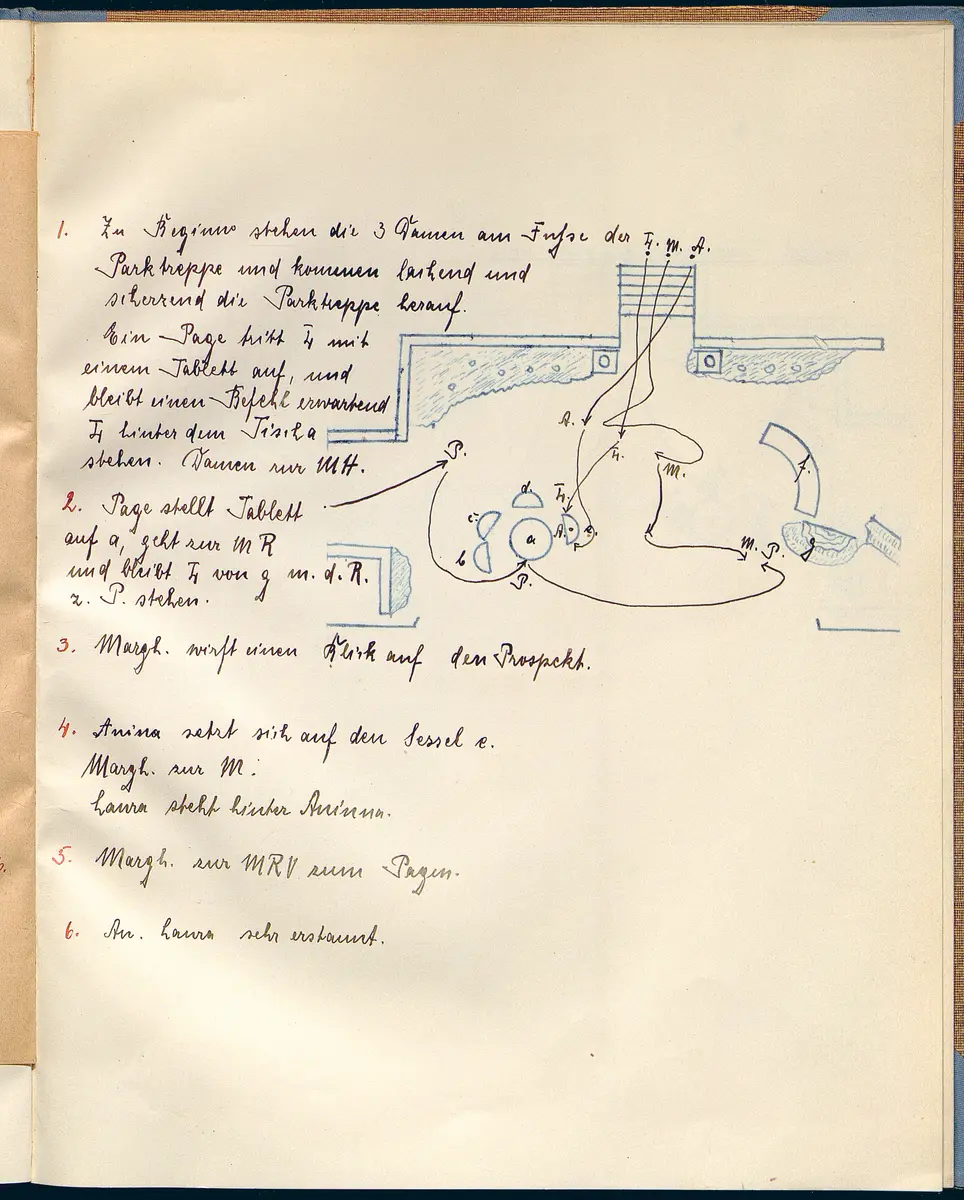 1. Zu Beginn stehen die 3 Damen am Fuße der L. M. A.
Parktreppe und kommen lachend und
scherzend die Parktreppe herauf.
Ein Page tritt L mit
einem Tablett auf, und
bleibt einen Befehl erwartend
L hinter dem Tisch a
stehen. Damen zur MH.
P.
A.
L.
M.
f.
2. Page stellt Tablett
auf a, geht zur MR
und bleibt L von g m. d. R.
z. P. stehen.
d.
L.
c
A.
e.
a
b
P.
M.
P.
g
3. Margh. wirft einen Blick auf den Prospekt.
4. Anina setzt sich auf den Sessel e.
Margh. zur M.
Laura steht hinter Aninna.
5. Margh. zur MRV zum Pagen.
6. An. Laura sehr erstaunt.